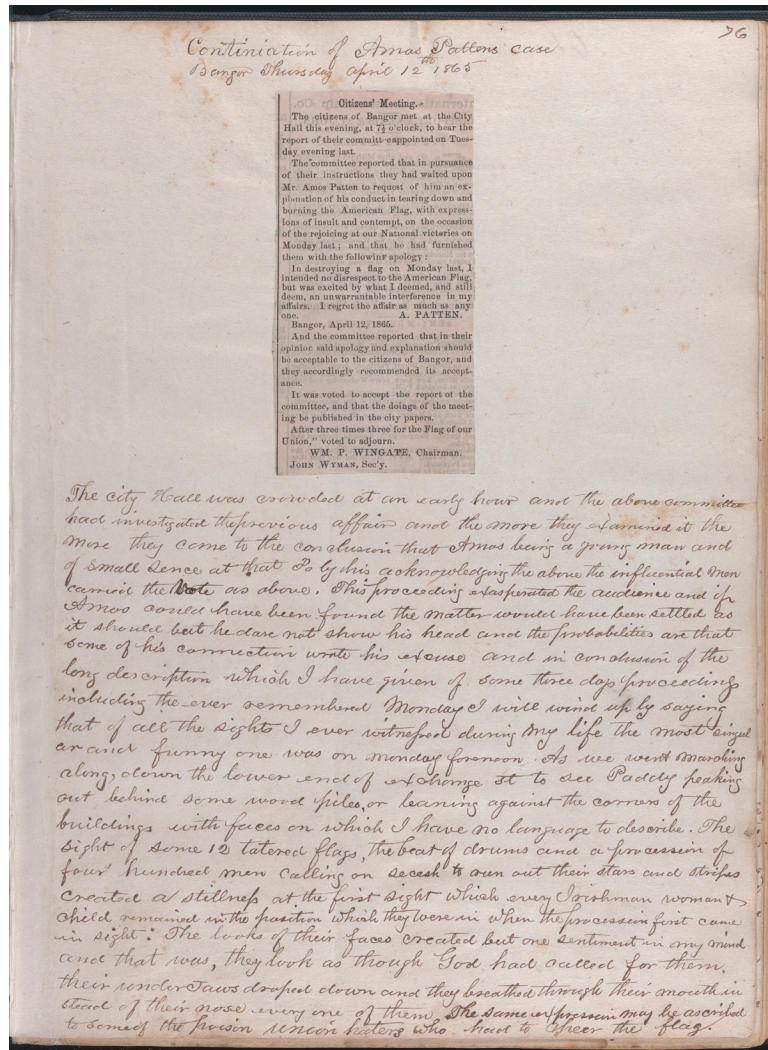 76
Continiation of Amos Pattens case
Bangor Thursday april 12th 1865
Citizens' Meeting.
The citizens of Bangor met at the City
Hall this evening, at 7½ o'clock, to hear the
report of their committ eappointed on Tues-
day evening last.
The committee reported that in pursuance
of their instructions they had waited upon
Mr. Amos Patten to request of him an ex-
planation of his conduct in tearing down and
burning the American Flag, with express-
ions of insult and contempt, on the occasion
of the rejoicing at our National victories on
Monday last; and that he had furnished
them with the following apology:
In destroying a flag on Monday last, I
intended no disrespect to the American Flag,
but was excited by what I deemed, and still
deem, an unwarrantable interference in my
affairs. I regret the affair as much as any
one. A. PATTEN.
Bangor, April 12, 1865.
And the committee reported that in their
opinion said apology and explanation should
be acceptable to the citizens of Bangor, and
they accordingly recommended its accept-
ance.
It was voted to accept the report of the
committee, and that the doings of the meet-
ing be published in the city papers.
After three times three for the Flag of our
Union," voted to adjourn.
WM. P. WINGATE, Chairman.
JOHN WYMAN, Sec'y.
The city Hall was crowded at an early hour and the above committee
had investigated the previous affair and the more they examined it the
more they come to the conclusion that Amos being a young man and
of small sence at that So by his acknowledging the above the influential men
carried the Vote as above. This proceeding exasperated the audience and if
Amos could have been found the matter would have been settled as
it should but he dare not show his head and the probabilities are that
some of his connection wrote his excuse and in conclusion of the
long description which I have given of some three days proceedings
including the ever remembered Monday I will wind up by saying
that of all the sights I ever witnessed during my life the most singul
ar and funny one was on monday forenoon. As we went marching
along, down the lower end of exchange St to see Paddy peaking
out behind some wood piles, or leaning against the corners of the
buildings with faces on which I have no language to describe. The
sight of some 12 tatered flags, the beat of drums and a procession of
four hundred men calling on secesh to run out their stars and stripes
created a stillness at the first sight which every Irishman woman &
child remained in the position which they were in when the procession first came
in sight. The looks of their faces created but one sentiment in my mind
and that was, they look as though God had called for them.
their under Jaws droped down and they breathed through their mouth in
stead of their nose every one of them. The same expression may be ascribed
to some of the poison union haters who had to cheer the flag.